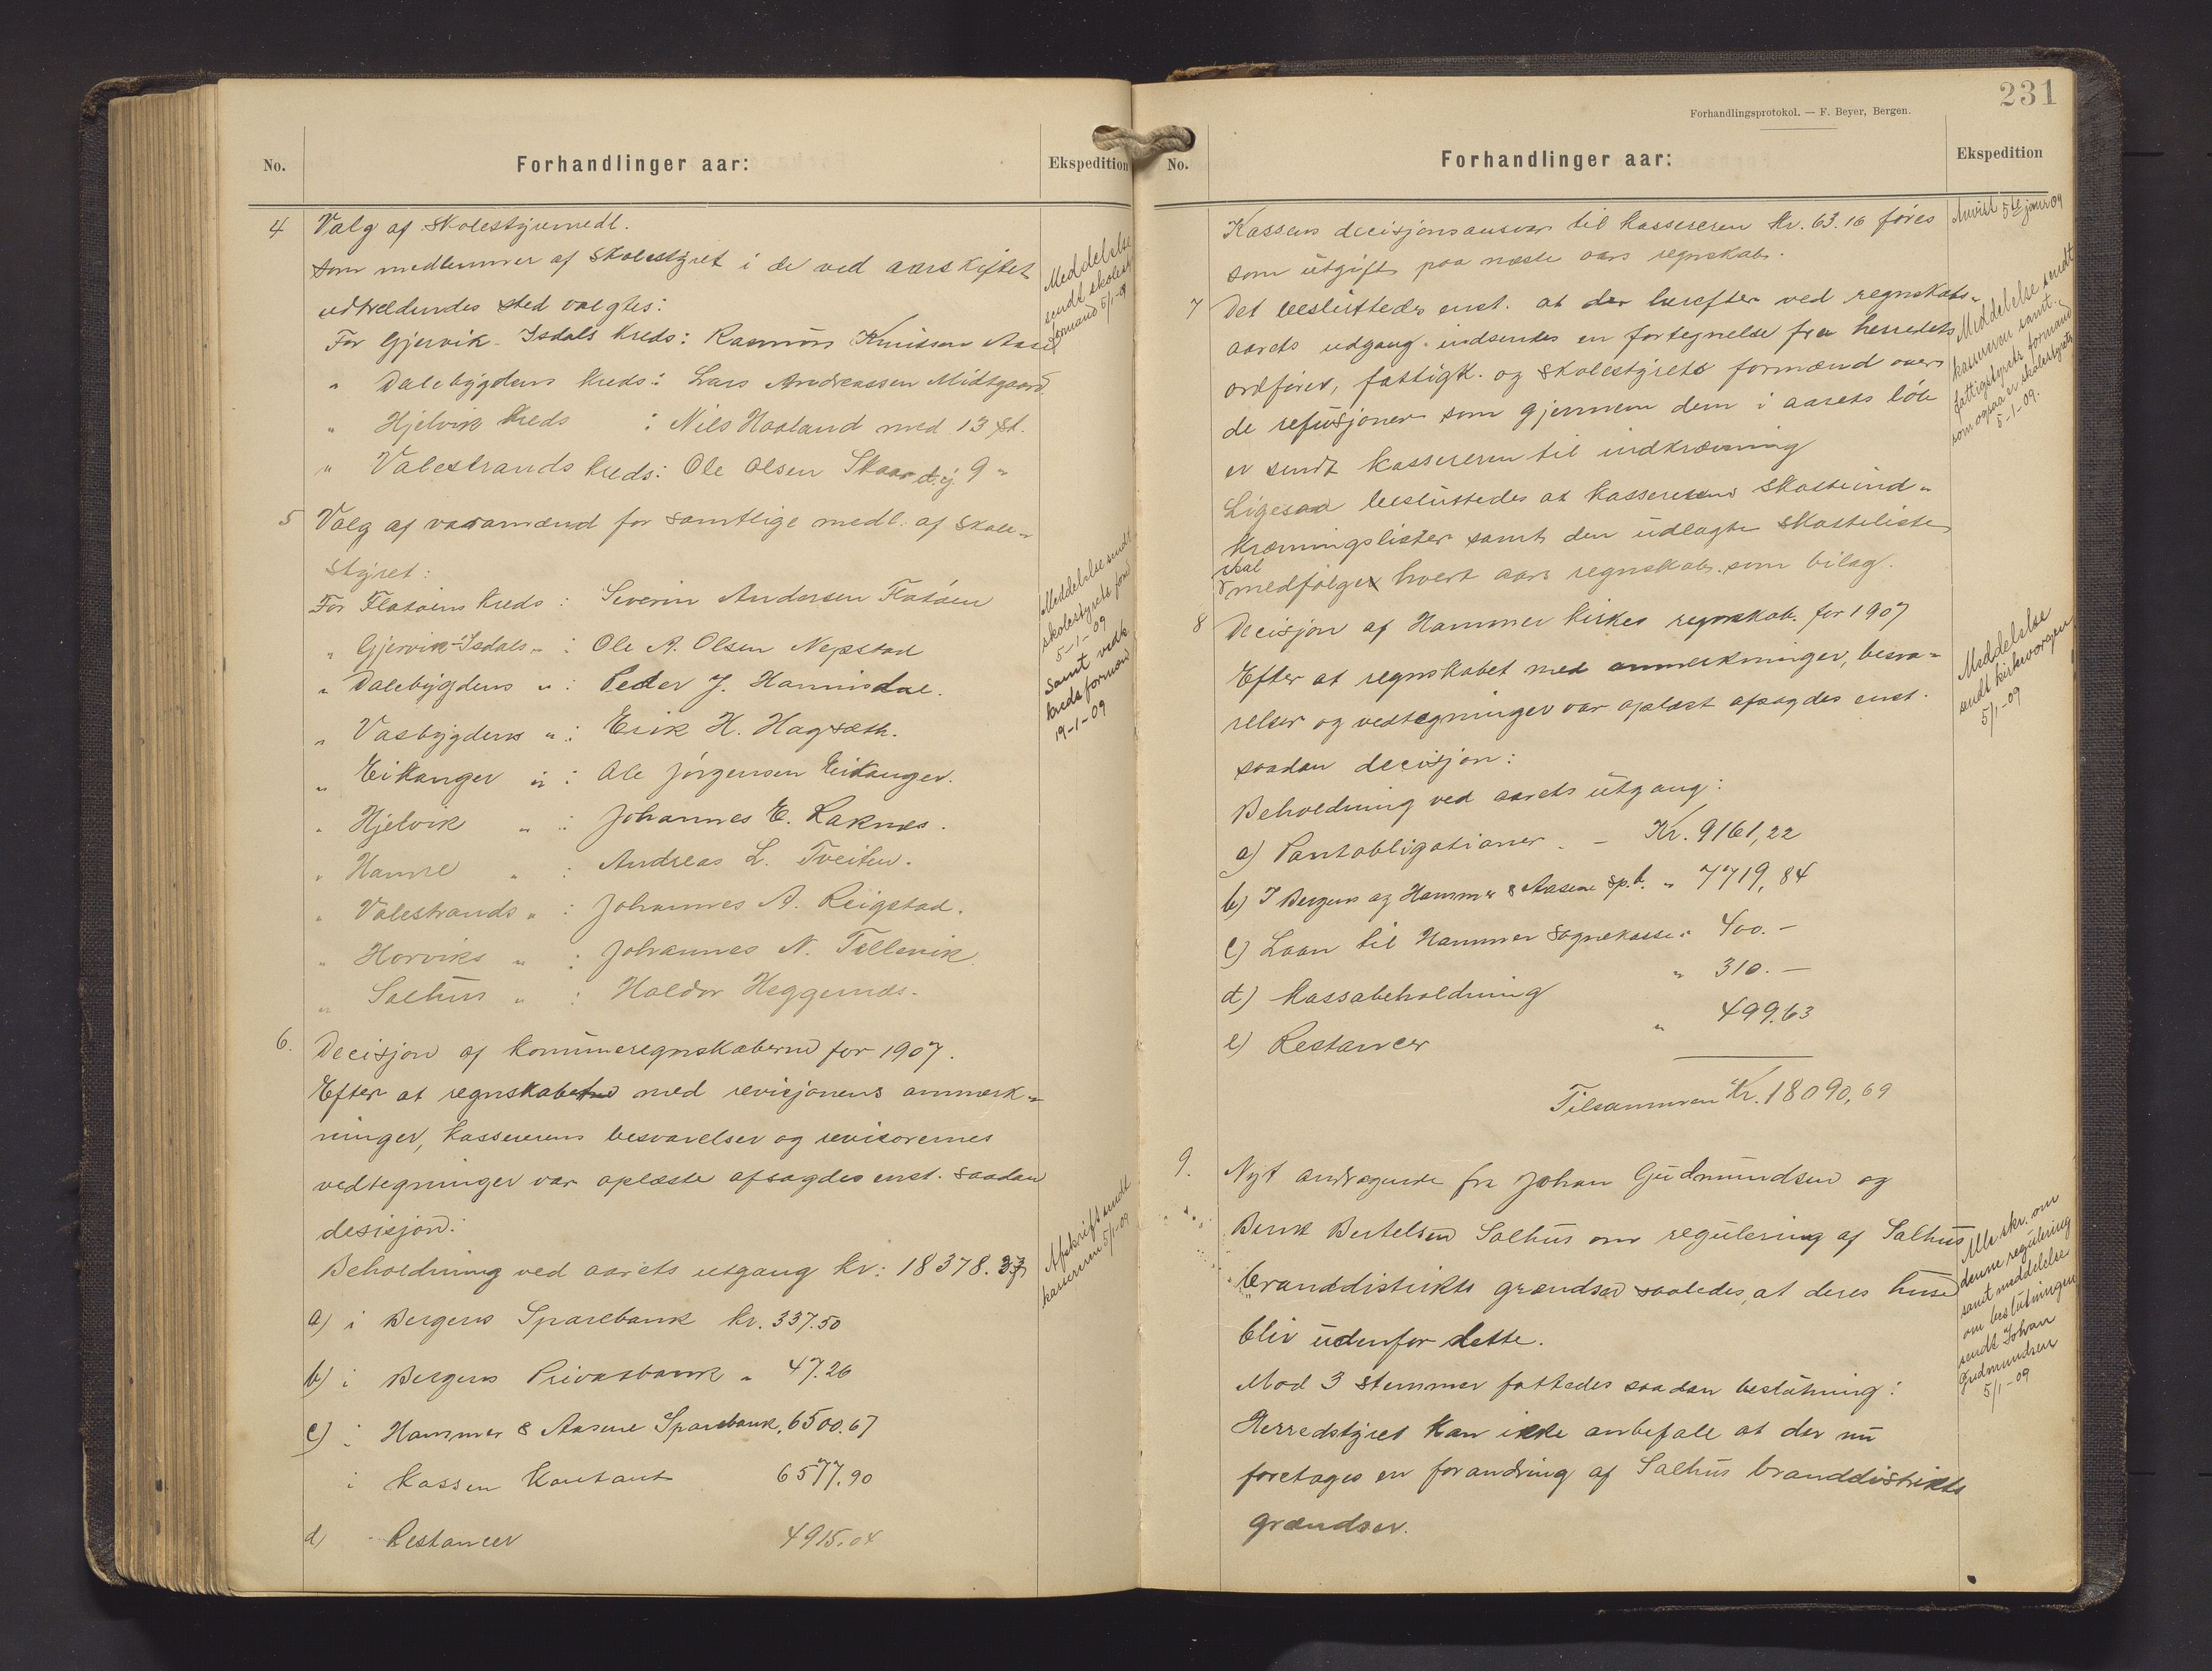 No.
Forhandlinger aar:
Ekspedition
4 Valg af Skolestyremedl.
Som medlemmer af Skolestyret i de ved aarsskiftet
udtrædendes sted valgtes:
For Gjervik-Isdals kreds: Rasmus Knutsen Aase
" Dalebygdens kreds: Lars Andreassen Midtgaard
" Hjelvik kreds : Nils Haaland med 13 st.
" Valestrands kreds: Ole Olsen Skaar 9 "
Meddelelse
sendt skolest.
formand 5/1-09
5 Valg af varamænd for samtlige medl. af Skole-
styret:
For Flatøens kreds : Severin Andersen Flatøen
" Gjervik-Isdals " : Ole A. Olsen Nepstad
" Dalebygdens " : Peder J. Hannisdal.
" Vasbygdens " : Erik H. Hagsæth.
" Eikanger " : Ole Jørgensen Eikanger.
" Hjelvik " : Johannes E. Raknes.
" Hamre " : Andreas L. Tveiten.
" Valestrands " : Johannes A. Reigstad.
" Horviks " : Johannes N. Tellevik
" Salhus " : Haldor Heggernæs.
Meddelelse sendt
skolestyrets form
5-1-09
Samt vedk
kredsformænd
19-1-09
6. Decisjon af kommuneregnskaberne for 1907.
Efter at regnskaberne med revisjonens anmærk-
ninger, kassererens besvarelser og revisorernes
vedtegninger var oplæste afsagdes enst. saadan
desisjon:
Beholdning ved aarets utgang kr: 18378.37
a) i Bergens Sparebank kr. 337.50
b) i Bergens Privatbank " 47.26
c) i Hammer & Aasene Sparebank " 6500.67
i Kassen Kontant 6577.90
d) Restancer 4915.04
Afskrift sendt
kassereren 5/1-09
231
Forhandlingsprotokol. — F. Beyer, Bergen.
No.
Forhandlinger aar:
Ekspedition
Kassens decisjonsansvar til kassereren kr. 63.16 føres
som utgift paa næste aars regnskab.
Anvist 5te janr 09
7 Det besluttedes enst. at der herefter ved regnskabs-
aarets udgang indsendes en fortegnelse fra herredets
ordfører, fattigk. og Skolestyrets formænd over
de refusjoner som gjennem dem i aarets løb
er sendt kassereren til indkrævning
Ligesaa besluttedes at kassererens Skatteind-
krævningslister samt den udlagte Skatteliste
skal
medfølger hvert aars regnskab som bilag.
Meddelelse sendt
kassereren samt
fattigstyrets formand
som ogsaa er skolestyrets
5-1-09.
8 Decisjon af Hammer kirkes regnskab for 1907
Efter at regnskabet med anmerkninger, besva-
relser og vedtegninger var oplæst afsagdes enst.
saadan decisjon:
Beholdning ved aarets utgang:
a) Pantobligationer. - Kr. 9161,22
b) I Bergens og Hammer & Aasene sp.b. " 7719,84
c) Laan til Hammer Sognekasse " 400.-
d) Kassabeholdning " 310.-
e) Restancer " 499.63
Tilsammen Kr. 18090,69
Meddelelse
sendt kirkevergen
5/1-09
9. Nyt andragende fra Johan Gudmundsen og
Berik Bertelsen Salhus om regulering af Salhus
branddistrikts grændser saaledes, at deres huse
bliv udenfor dette.
Mod 3 stemmer fattedes saadan beslutning:
Herredstyret kan ikke anbefale at der nu
foretages en forandring af Salhus branddistrikts
grændser.
Alle skr. om
denne regulering
samt meddelelse
om beslutningen
sendt Johan
Gudmundsen
5/1-09